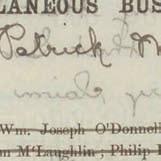 LANEOUS BUS
Patrick M
Wm, Joseph O'Donnell
m McLaughlin; Philip